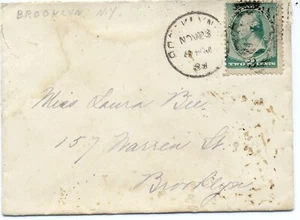 BROOKLYN, N.Y.
BROOKLYN
88
TWO CENTS
Miss Laura Bee.
157 Warren St.
Brooklyn